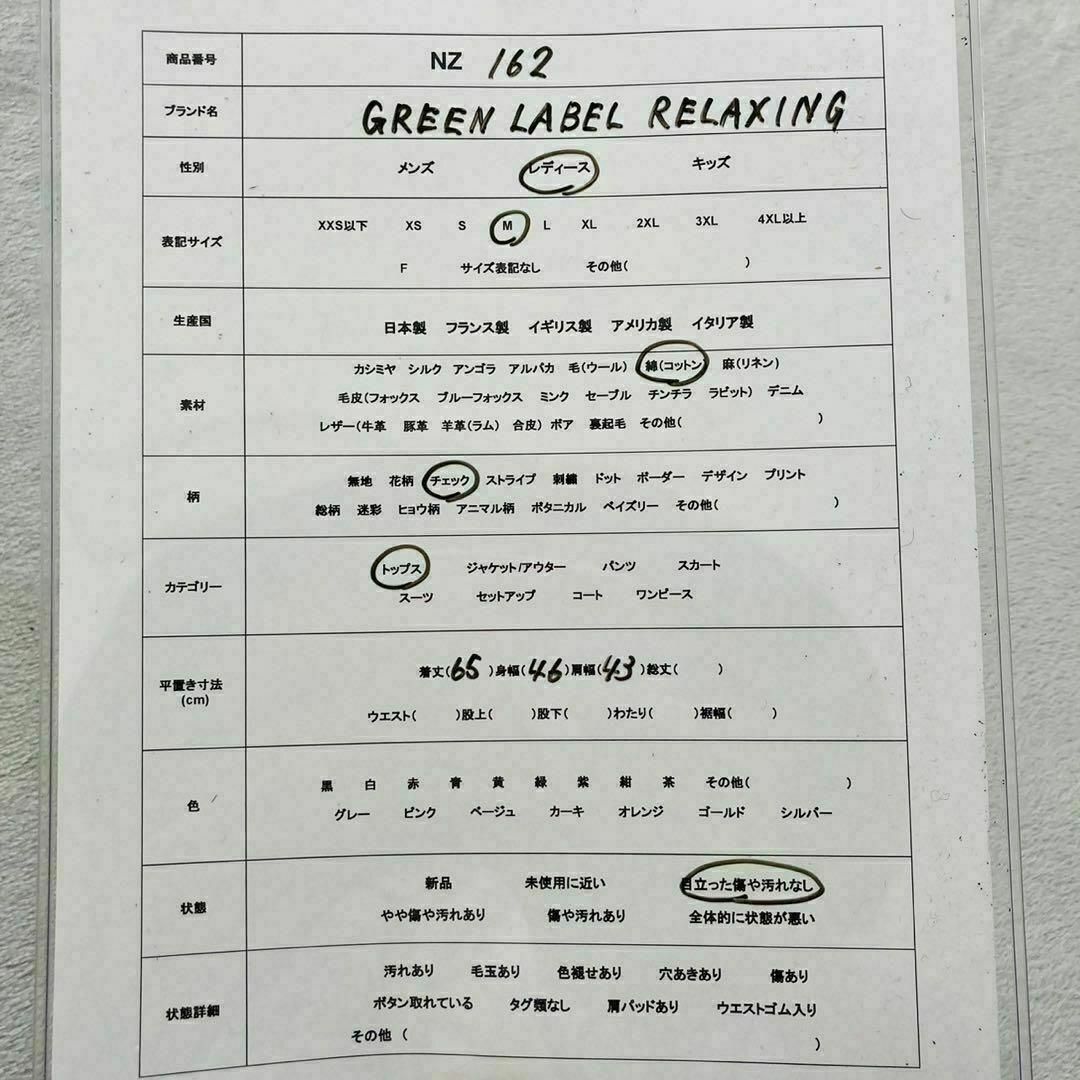 商品番号 NZ 162
ブランド名 GREEN LABEL RELAXING
性別 メンズ レディース キッズ
表記サイズ XXS以下 XS S M L XL 2XL 3XL 4XL以上
F サイズ表記なし その他( )
生産国 日本製 フランス製 イギリス製 アメリカ製 イタリア製
素材 カシミヤ シルク アンゴラ アルパカ 毛(ウール) 綿(コットン) 麻(リネン)
毛皮(フォックス ブルーフォックス ミンク セーブル チンチラ ラビット) デニム
レザー(牛革 豚革 羊革(ラム) 合皮) ボア 裏起毛 その他( )
柄 無地 花柄 チェック ストライプ 刺繍 ドット ボーダー デザイン プリント
総柄 迷彩 ヒョウ柄 アニマル柄 ボタニカル ペイズリー その他( )
カテゴリー トップス ジャケット/アウター パンツ スカート
スーツ セットアップ コート ワンピース
平置き寸法 着丈(65 )身幅(46 )肩幅(43 )総丈( )
(cm) ウエスト( )股上( )股下( )わたり( )裾幅( )
色 黒 白 赤 青 黄 緑 紫 紺 茶 その他( )
グレー ピンク ベージュ カーキ オレンジ ゴールド シルバー
状態 新品 未使用に近い 目立った傷や汚れなし
やや傷や汚れあり 傷や汚れあり 全体的に状態が悪い
状態詳細 汚れあり 毛玉あり 色褪せあり 穴あきあり 傷あり
ボタン取れている タグ類なし 肩パッドあり ウエストゴム入り
その他 ( )